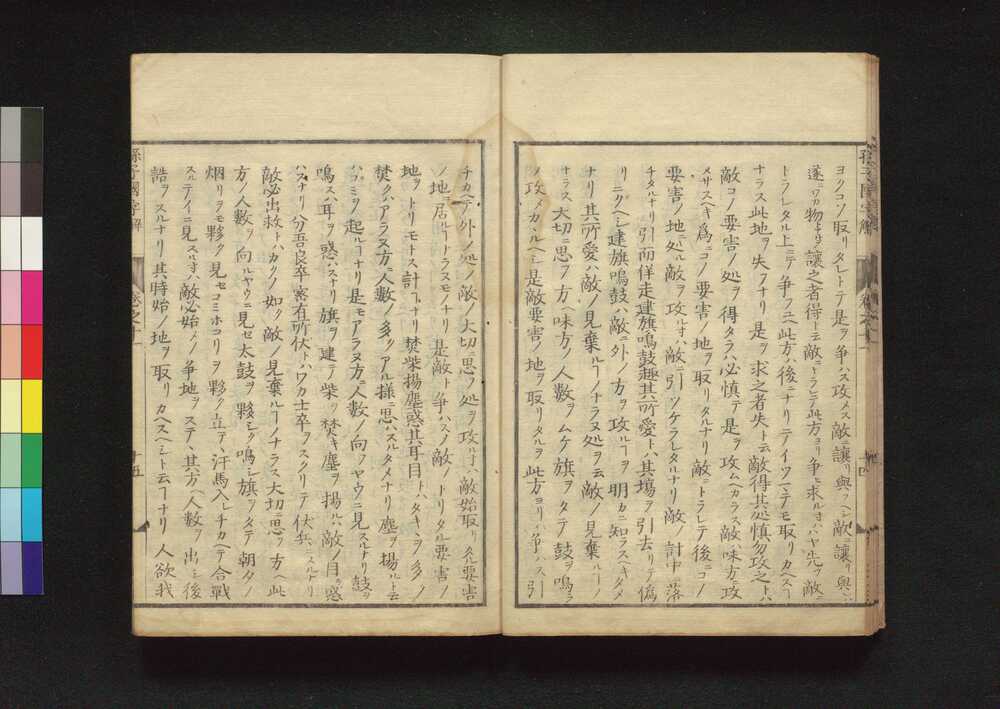 ヨクコソ取リタレトテ是ヲ争ハス攻メス敵ニ讓リ與フヘシ敵ニ讓リ與ハ
遂ニワカ物トナサン讓之者得トニ敵ニトラレテ此方ヨリ争ヒ求ル寸ハハヤ先ツ敵ニ
トラレタル上ニテ争フユヘ此方ハ後ニナリテイツマテモ取リカヘスヿ
ナラス此地ヲ失フナリ是ヲ求之者失ト云敵得其処慎勿攻之トハ
敵コノ要害ノ処ヲ得タラハ必慎テ是ヲ攻ムヘカラス敵味方トモ攻
メサスヘキ爲ニコノ要害ノ地ヲ取リタルナリ敵ニトラレテ後ニコノ
要害ノ地処ル敵ヲ攻ル寸ハ敵ニ引ツケラレタルナリ敵ノ計中ニ落
チタルナリ引而佯走建旗鳴鼓趣其所愛トハ其場ヲ引去リテ偽
リニクヘシ建旗鳴鼓ハ敵ニ外ノ方ヲ攻ルヿヲ明カニ知ラスヘキタメ
ナリ其所愛ハ敵ノ見棄ルヿノナラヌ処ヲ云敵ノ見棄ルヿノ
ナラス大切ニ思フ方ヘ味方ノ人数ヲムケ旗ヲタテ鼓ヲ鳴ラ
ノ攻メカヽルヘシ是敵要害ノ地ヲ取リタルヲ此方ヨリ争ハス引
孫子國字解
巻之十一
十四
チカヘテ外ノ処ノ敵ノ大切ニ思フ処ヲ攻ル寸ハ敵始取リタル要害
ノ地ニ居ルヿナラスモノナリ是敵ト争ハスノ敵ノトリタル要害ノ
地ヲトリモトス計ヿナリ焚柴揚塵惑其耳目トハタキヽヲ多ク
焚クハアラヌ方ニ人数ノ多クアル様ニ思ハスルタメナリ塵ヲ揚ルト云
ハコミヲ起ルヿナリ是モアラヌ方ニ人数ノ向フヤウニ見スルナリ鼓ヲ
鳴スハ耳ヲ惑ハスナリ旗ヲ建テ柴ヲ焚キ塵ヲ揚ルハ敵ノ目ヲ惑
ハスナリ分吾良卒密有所伏トハワカ士卒ヲスクリテ伏兵ニスルナリ
敵必出救トハカクノ如ク敵ノ見棄ルヿノナラス大切ニ思フ方ヘ此
方ノ人数ヲ向ルヤウニ見セ太鼓ヲ夥シク鳴シ旗ヲタテ朝夕ノ
烟リヲモ夥ク見セコミホコリヲ夥ク立テ汗馬入レチカヘテ合戰
スルテイニ見スル寸ハ敵必始メノ争地ヲステ其方ヘ人数ヲ出シ後
詰ヲスルナリ其時始ノ地ヲ取リカヘスヘシト云ヿナリ人欲我
孫子國字解
巻之十一
十五